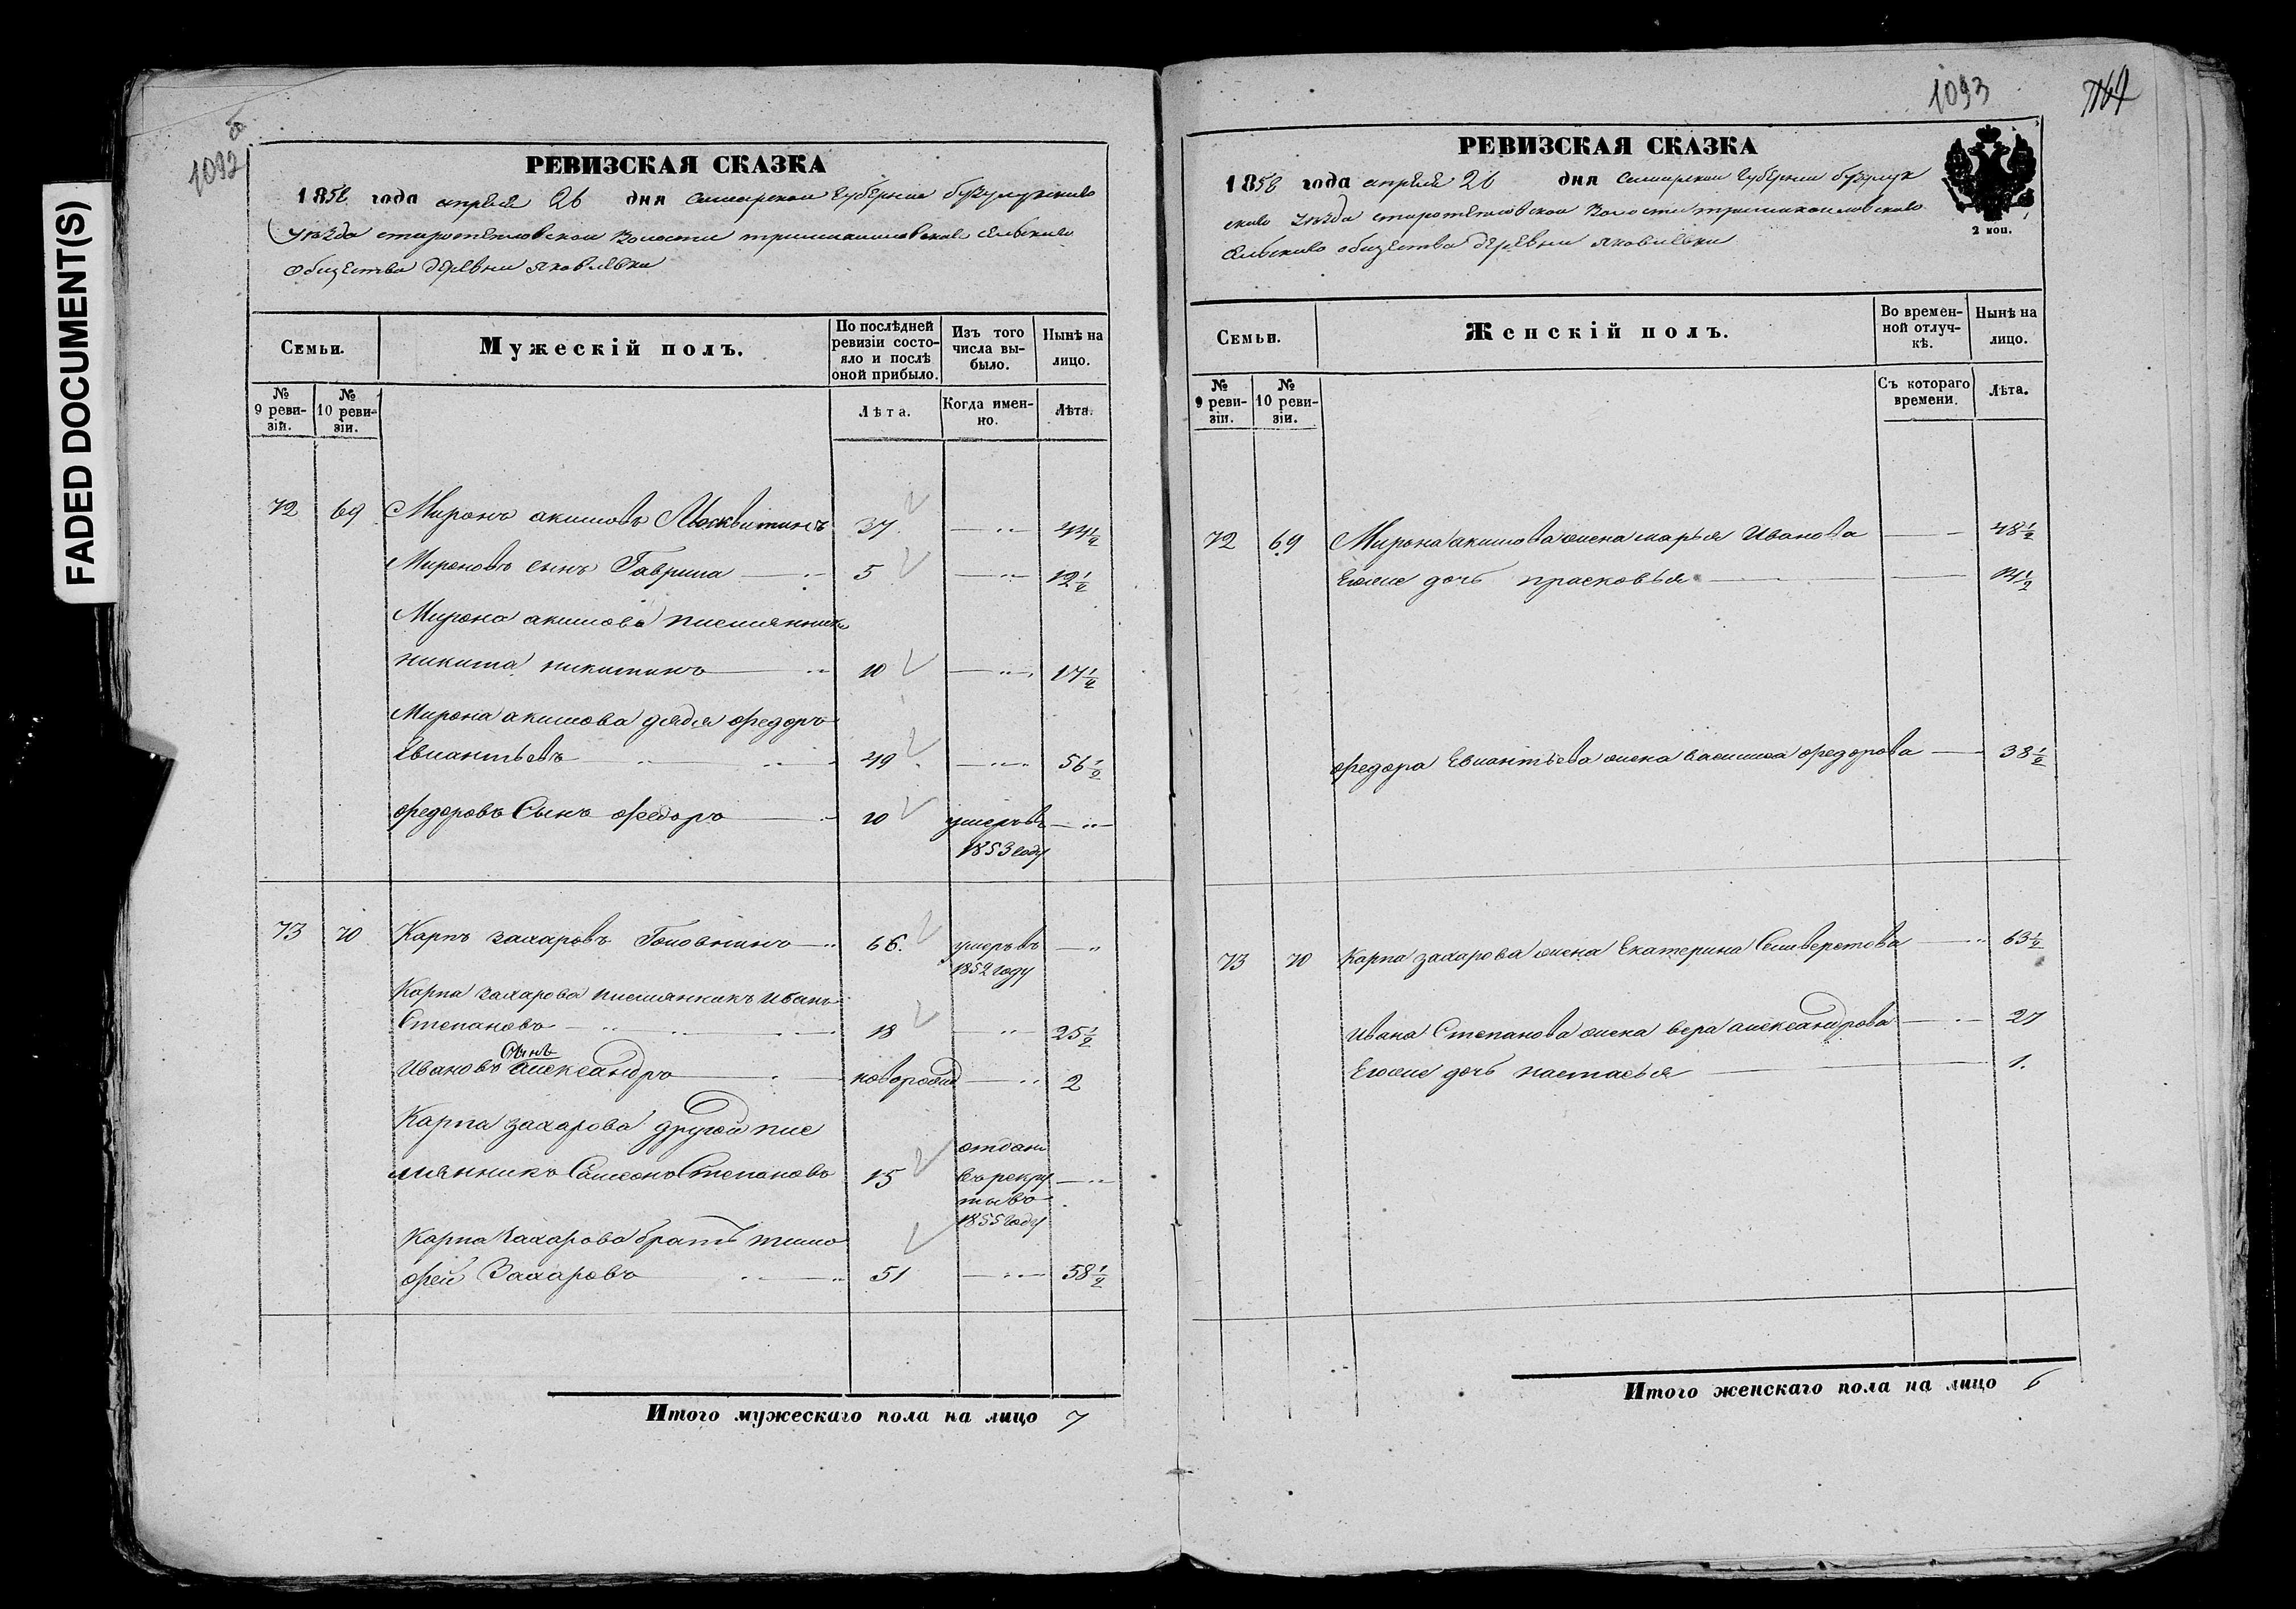 FADED DOCUMENT(S)
1092 об
РЕВИЗСКАЯ СКАЗКА
1858 года апреля 26 дня Самарской губернии бузулукскаво
уѣзда старотепловской волости сельскаво
общества деревни яковлевки
Семьи.
Мужескій полъ.
По послѣдней ревизіи состояло и послѣ оной прибыло.
Изъ того числа выбыло.
Нынѣ на лицо.
№ 9 ревизіи.
№ 10 ревизіи.
Лѣта.
Когда именно.
Лѣта.
72 69 Миронъ акимовъ Москвитинъ 37 — 44½
Мироновъ сынъ Гаврила — 5 — 12½
Мирона акимова племянникъ
никита никитинъ — 10 — 17½
Мирона акимова дядя федоръ
Евлантьевъ — 49 — 56½
федоровъ Сынъ федоръ — 20 умеръ въ —
1853 году
73 70 Карпъ захаровъ Головнинъ — 66. умеръ въ —
1852 году
Карпа захарова племянникъ иванъ
Степановъ — 18 — 25½
Ивановъ Сынъ александръ — новорожд — 2
Карпа захарова другой пле
мянникъ Самсонъ Степановъ 15 отданъ въ рекруты въ 1855 году —
Карпа Захарова братъ тимо
фей Захаровъ 51 — 58½
Итого мужескаго пола на лицо 7
1093
РЕВИЗСКАЯ СКАЗКА
1858 года апреля 26 дня Самарской губернии бузулук
скаво уѣзда старотепловской волости
сельскаво общества деревни яковлевки
2 коп.
Семьи.
Женскій полъ.
Во временной отлучкѣ.
Нынѣ на лицо.
№ 9 ревизіи.
№ 10 ревизіи.
Съ котораго времени.
Лѣта.
72 69 Мирона акимова жена марья Иванова — 48½
Евоже дочь прасковья — 14½
федора Евлантьева жена василиса федорова — 38½
73 70 Карпа захарова жена Екатерина Селиверстова — 63½
Ивана Степанова жена вера александрова — 27
Евоже дочь настасья — 1.
Итого женскаго пола на лицо 6